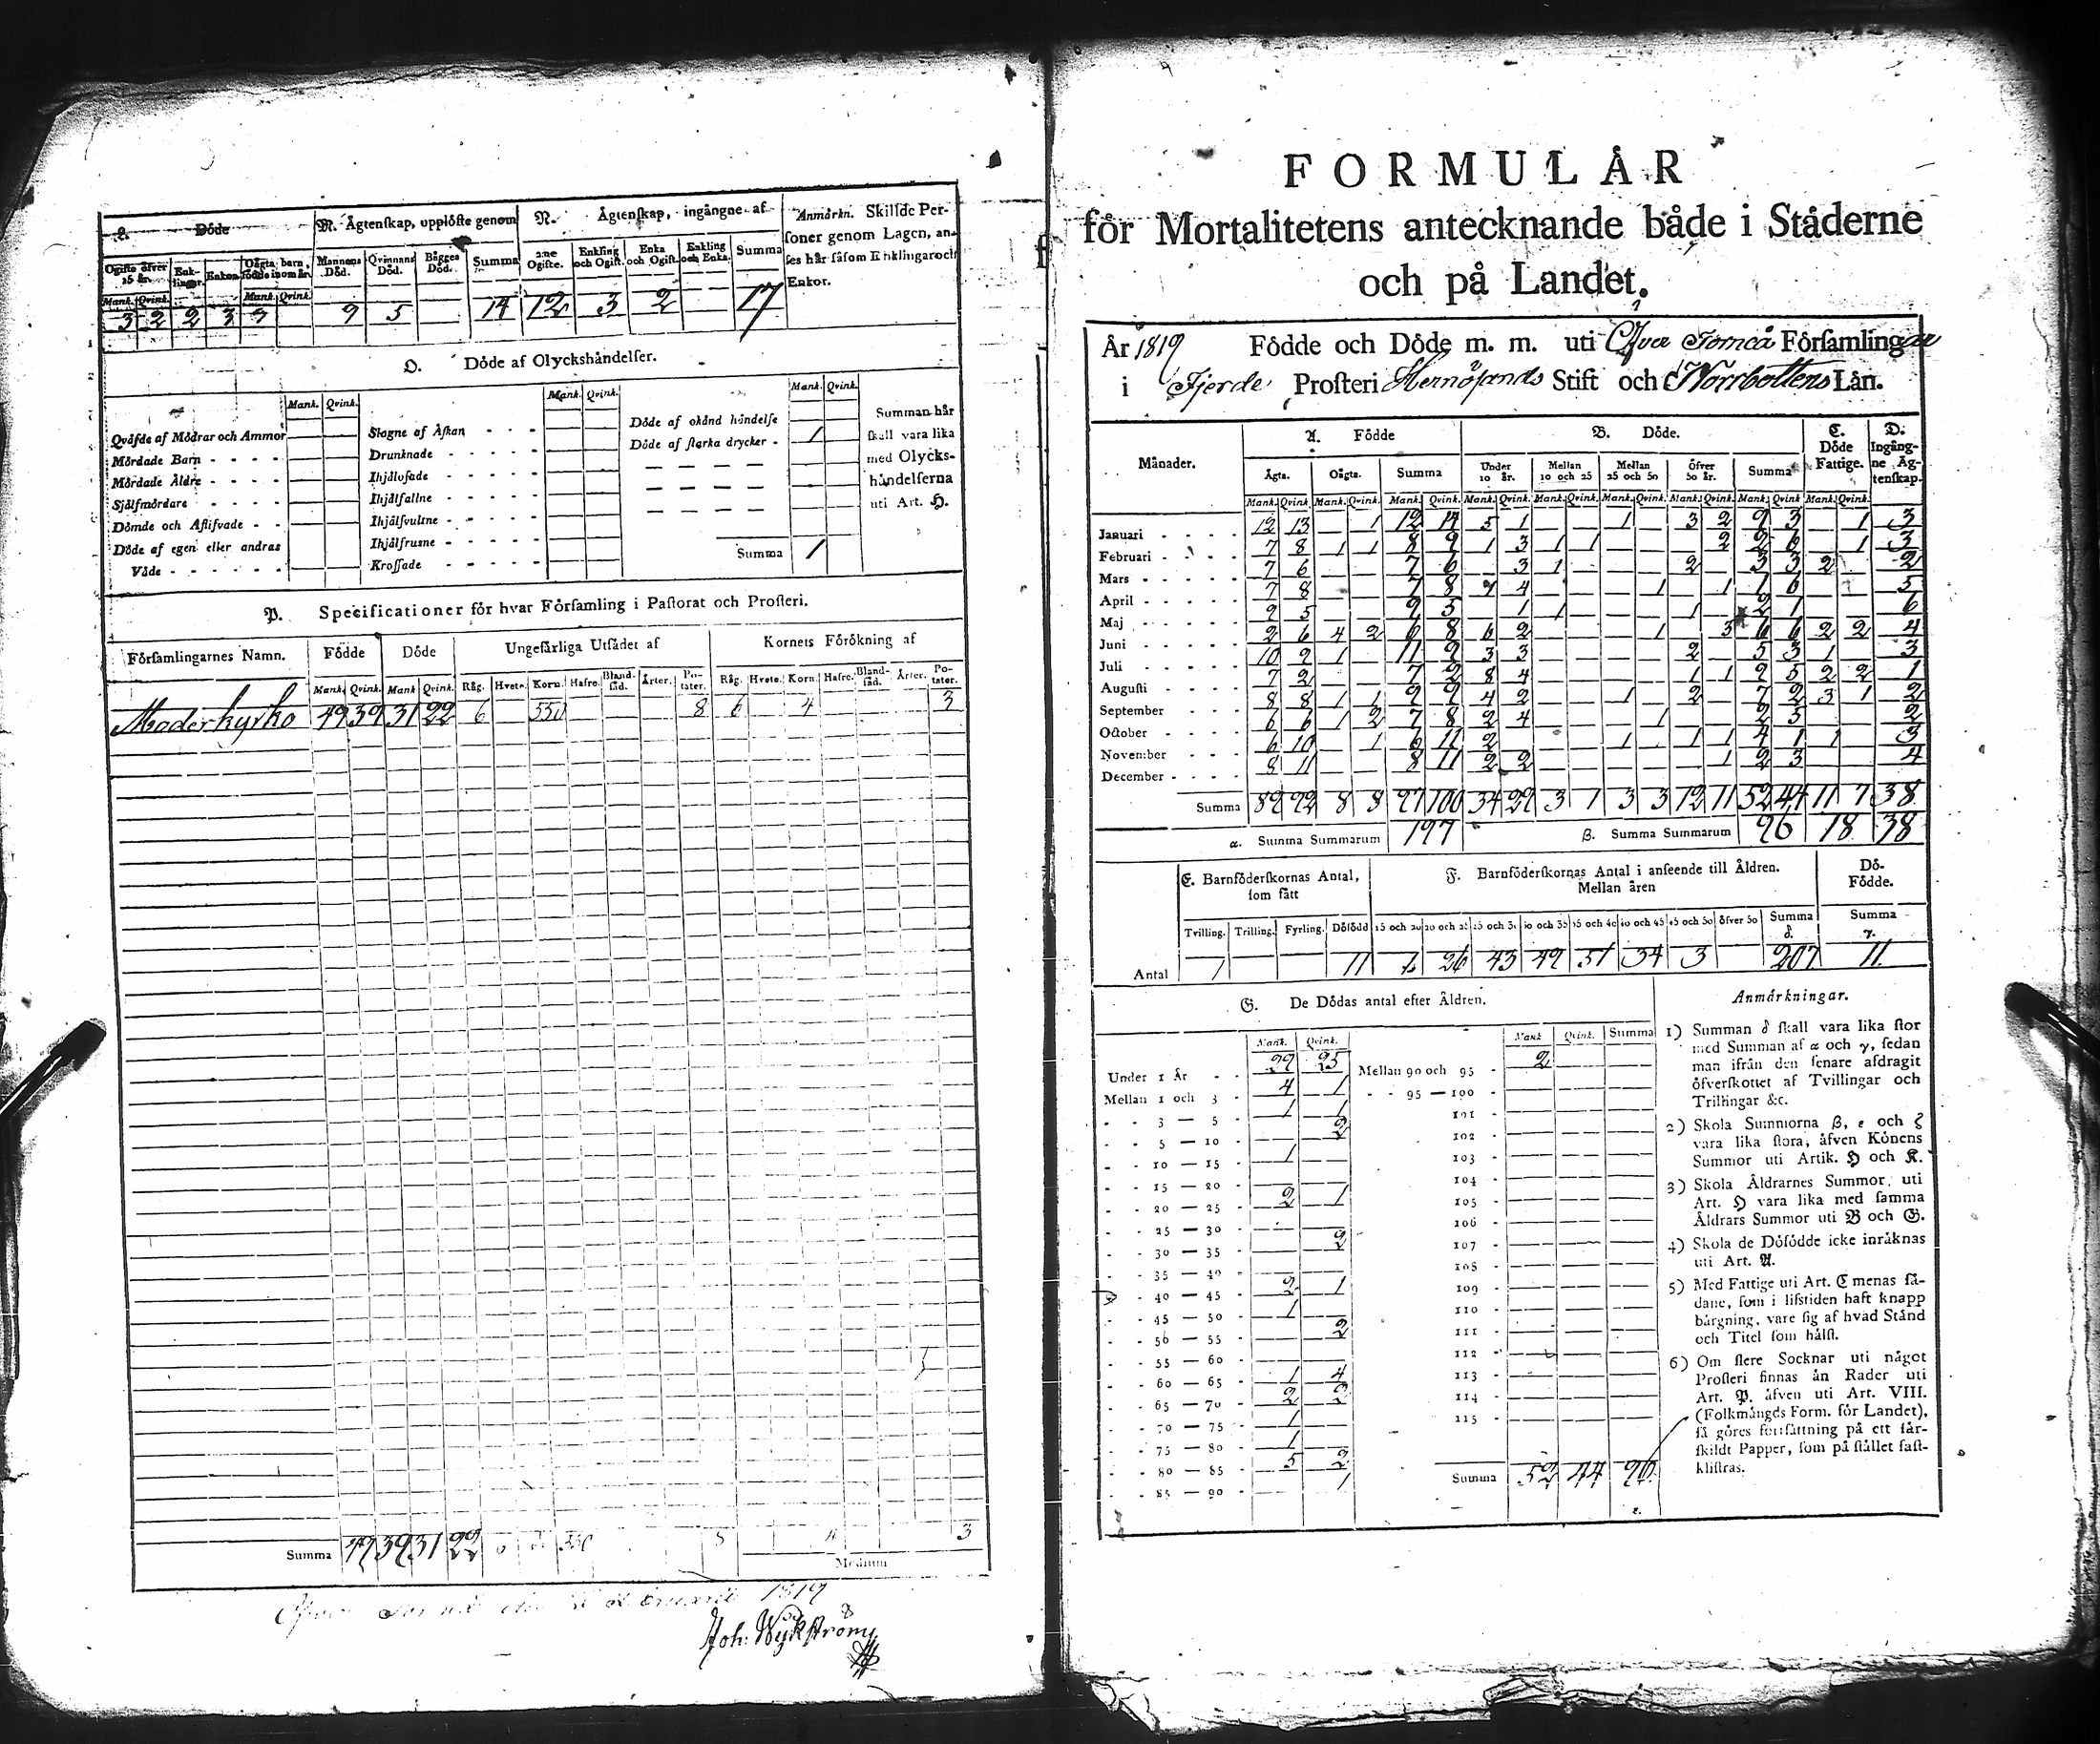 L. Döde
M. Ägtenskap, upplöste genom
N. Ägtenskap, ingångne af
Anmärkn. Skillde Per-
soner genom Lagen, an-
ses här såsom Enklingar och
Enkor.
Ogifte öfver 15 år.
Enk-lingar.
Enkor.
Oägta barn, födde inom år.
Mannens Död.
Qvinnans Död.
Bägges Död.
Summa
Ogifte.
Enkling och Ogift.
Enka och Ogift.
Enkling och Enka.
Summa
Mank. Qvink. Mank. Qvink.
3 2 2 3 9 5 14 12 3 2 17
O. Döde af Olyckshändelser.
Mank. Qvink. Mank. Qvink. Mank. Qvink.
Qväfde af Mödrar och Ammor
Mördade Barn
Mördade Äldre
Sjelfmördare
Dömde och Aflifvade
Döde af egen eller andras
Våde
Slagne af Åskan
Drunknade
Ihjälsofade
Ihjälfallne
Ihjälsvultne
Ihjälfrusne
Krossade
Döde af okänd händelse
Döde af starka drycker - 1
Summa 1
Summan här
skall vara lika
med Olycks-
händelserna
uti Art. H.
P. Specificationer för hvar Församling i Pastorat och Prosteri.
Församlingarnes Namn. Födde Döde Ungefärliga Utsädet af Kornets Förökning af
Mank. Qvink. Mank. Qvink. Råg. Hvete. Korn. Hafre. Bland-säd. Ärter. Po-tater. Råg. Hvete. Korn. Hafre. Bland-säd. Ärter. Po-tater.
Moderkyrko 49 39 31 22 6 550 8 6 4 3
Summa 49 39 31 22 8 3
Medium
1819
Joh. Wykström
FORMULÄR
för Mortalitetens antecknande både i Städerne
och på Landet.
År 1819 Födde och Döde m. m. uti Öfver Torneå Församlingar
i Fjerde Prosteri Hernösands Stift och Norrbottens Län.
Månader. A. Födde B. Döde. C. Döde Fattige. D. Ingång-ne Äg-tenskap.
Ägta. Oägta. Summa Under 10 år. Mellan 10 och 25 Mellan 25 och 50 Öfver 50 år. Summa
Mank. Qvink. Mank. Qvink. Mank. Qvink. Mank. Qvink. Mank. Qvink. Mank. Qvink. Mank. Qvink. Mank. Qvink. Mank. Qvink.
Januari 12 13 1 12 14 5 1 1 3 2 9 3 1 3
Februari 7 8 1 1 8 9 1 3 1 1 2 2 6 1 3
Mars 7 6 7 6 3 1 2 3 3 2 2
April 7 8 7 8 4 1 1 1 6 5
Maj 9 5 9 5 1 1 1 2 1 6
Juni 2 6 4 2 6 8 6 2 1 3 6 6 2 2 4
Juli 10 9 1 11 9 3 3 2 5 3 1 3
Augusti 7 2 7 2 8 4 1 1 9 5 2 2 1
September 8 8 1 1 9 9 4 2 1 2 7 2 3 1 2
October 6 6 1 2 7 8 2 4 1 2 5 2
November 6 10 1 6 11 2 1 1 1 4 1 1 3
December 8 11 8 11 2 2 1 2 3 4
Summa 89 92 8 8 97 100 34 29 3 1 3 3 12 11 52 44 11 7 38
α. Summa Summarum 197 β. Summa Summarum 96 18 38
E. Barnföderskornas Antal,
som fått
F. Barnföderskornas Antal i anseende till Åldren.
Mellan åren
Dö-
Födde.
Tvilling. Trilling. Fyrling. Dödfödd 15 och 20 20 och 25 25 och 30 30 och 35 35 och 40 40 och 45 45 och 50 öfver 50 Summa δ. Summa γ.
Antal 1 11 26 43 49 51 34 3 207 11
G. De Dödas antal efter Åldren.
Mank. Qvink. Mank. Qvink. Summa
Under 1 År 29 25
Mellan 1 och 3 - 4 1
3 — 5 - 1 1
5 — 10 - 2
10 — 15 - 1
15 — 20 -
20 — 25 - 2 1
25 — 30 -
30 — 35 - 2
35 — 40 -
40 — 45 - 2 1
45 — 50 - 1
50 — 55 - 2
55 — 60 -
60 — 65 - 1 4
65 — 70 - 2 2
70 — 75 - 1
75 — 80 - 1
80 — 85 - 5 2
85 — 90 - 1
Mellan 90 och 95 - 2
95 — 100 -
101 -
102 -
103 -
104 -
105 -
106 -
107 -
108 -
109 -
110 -
111 -
112 -
113 -
114 -
115 -
Summa 52 44 96
ε.
Anmärkningar.
1) Summan δ skall vara lika stor
med Summan af α och γ, sedan
man ifrån den senare afdragit
öfverskottet af Tvillingar och
Trillingar &c.
2) Skola Summorna β, ε och ζ
vara lika stora, äfven Könens
Summor uti Artik. H och K.
3) Skola Åldrarnes Summor, uti
Art. H vara lika med samma
Åldrars Summor uti B och G.
4) Skola de Dödfödde icke inräknas
uti Art. A.
5) Med Fattige uti Art. C menas så-
dane, som i lifstiden haft knapp
bärgning, vare sig af hvad Stånd
och Titel som hälst.
6) Om flere Socknar uti något
Prosteri finnas än Rader uti
Art. P. äfven uti Art. VIII.
(Folkmängds Form. för Landet),
så göres fortsättning på ett sär-
skildt Papper, som på stället fast-
klistras.